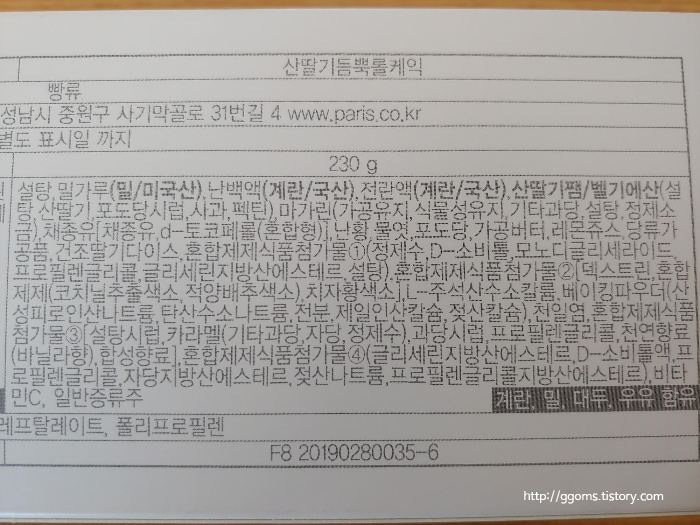 산딸기듬뿍롤케익
빵류
성남시 중원구 사기막골로 31번길 4 www.paris.co.kr
별도 표시일 까지
230 g
설탕,밀가루(밀/미국산),난백액(계란/국산),전란액(계란/국산),산딸기잼/벨기에산(설
탕,산딸기,포도당시럽,사과,펙틴),마가린(가공유지,식물성유지,기타과당,설탕,정제소
금),채종유[채종유,d-토코페롤(혼합형)],난황,물엿,포도당,가공버터,레몬쥬스,당류가
공품,건조딸기다이스,혼합제제식품첨가물①(정제수,D-소비톨,모노디글리세라이드,
프로필렌글리콜,글리세린지방산에스테르,설탕),혼합제제식품첨가물②[덱스트린,혼합
제제(코치닐추출색소,적양배추색소),치자황색소],L-주석산수소칼륨,베이킹파우더(산
성피로인산나트륨,탄산수소나트륨,전분,제일인산칼슘,젖산칼슘),천일염,혼합제제식품
첨가물③[설탕시럽,카라멜(기타과당,자당,정제수),과당시럽,프로필렌글리콜,천연향료
(바닐라향),합성향료],혼합제제식품첨가물④(글리세린지방산에스테르,D-소비톨액,프
로필렌글리콜,자당지방산에스테르,젖산나트륨,프로필렌글리콜지방산에스테르),비타
민C, 일반증류주
계란, 밀, 대두, 우유 함유
레프탈레이트, 폴리프로필렌
F8 20190280035-6
http://ggoms.tistory.com